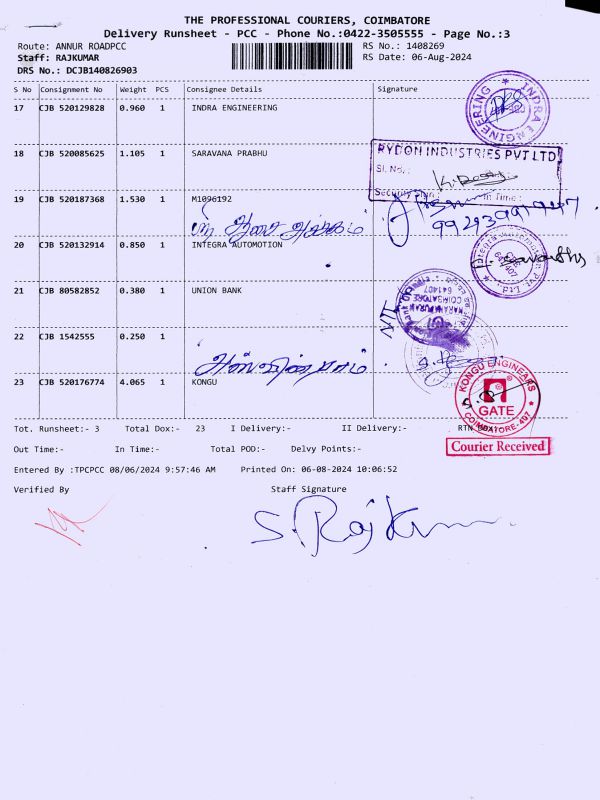 THE PROFESSIONAL COURIERS, COIMBATORE
Delivery Runsheet - PCC - Phone No.:0422-3505555 - Page No.:3
Route: ANNUR ROADPCC
RS No.: 1408269
Staff: RAJKUMAR
RS Date: 06-Aug-2024
DRS No.: DCJB140826903
S No Consignment No Weight PCS Consignee Details Signature
17 CJB 520129828 0.960 1 INDRA ENGINEERING
INDRA ENGINEERING
18 CJB 520085625 1.105 1 SARAVANA PRABHU
RYDON INDUSTRIES PVT LTD
Sl. No.:
Security Sign: In Time:
19 CJB 520187368 1.530 1 M1096192
20 CJB 520132914 0.850 1 INTEGRA AUTOMOTION
21 CJB 80582852 0.380 1 UNION BANK
COIMBATORE
641407
NIT
22 CJB 1542555 0.250 1
23 CJB 520176774 4.065 1 KONGU
KONGU ENGINEERS
GATE
COIMBATORE-407
Tot. Runsheet:- 3 Total Dox:- 23 I Delivery:- II Delivery:- RTN DOX:-
Courier Received
Out Time:- In Time:- Total POD:- Delvy Points:-
Entered By :TPCPCC 08/06/2024 9:57:46 AM Printed On: 06-08-2024 10:06:52
Verified By Staff Signature
S. Rajkum